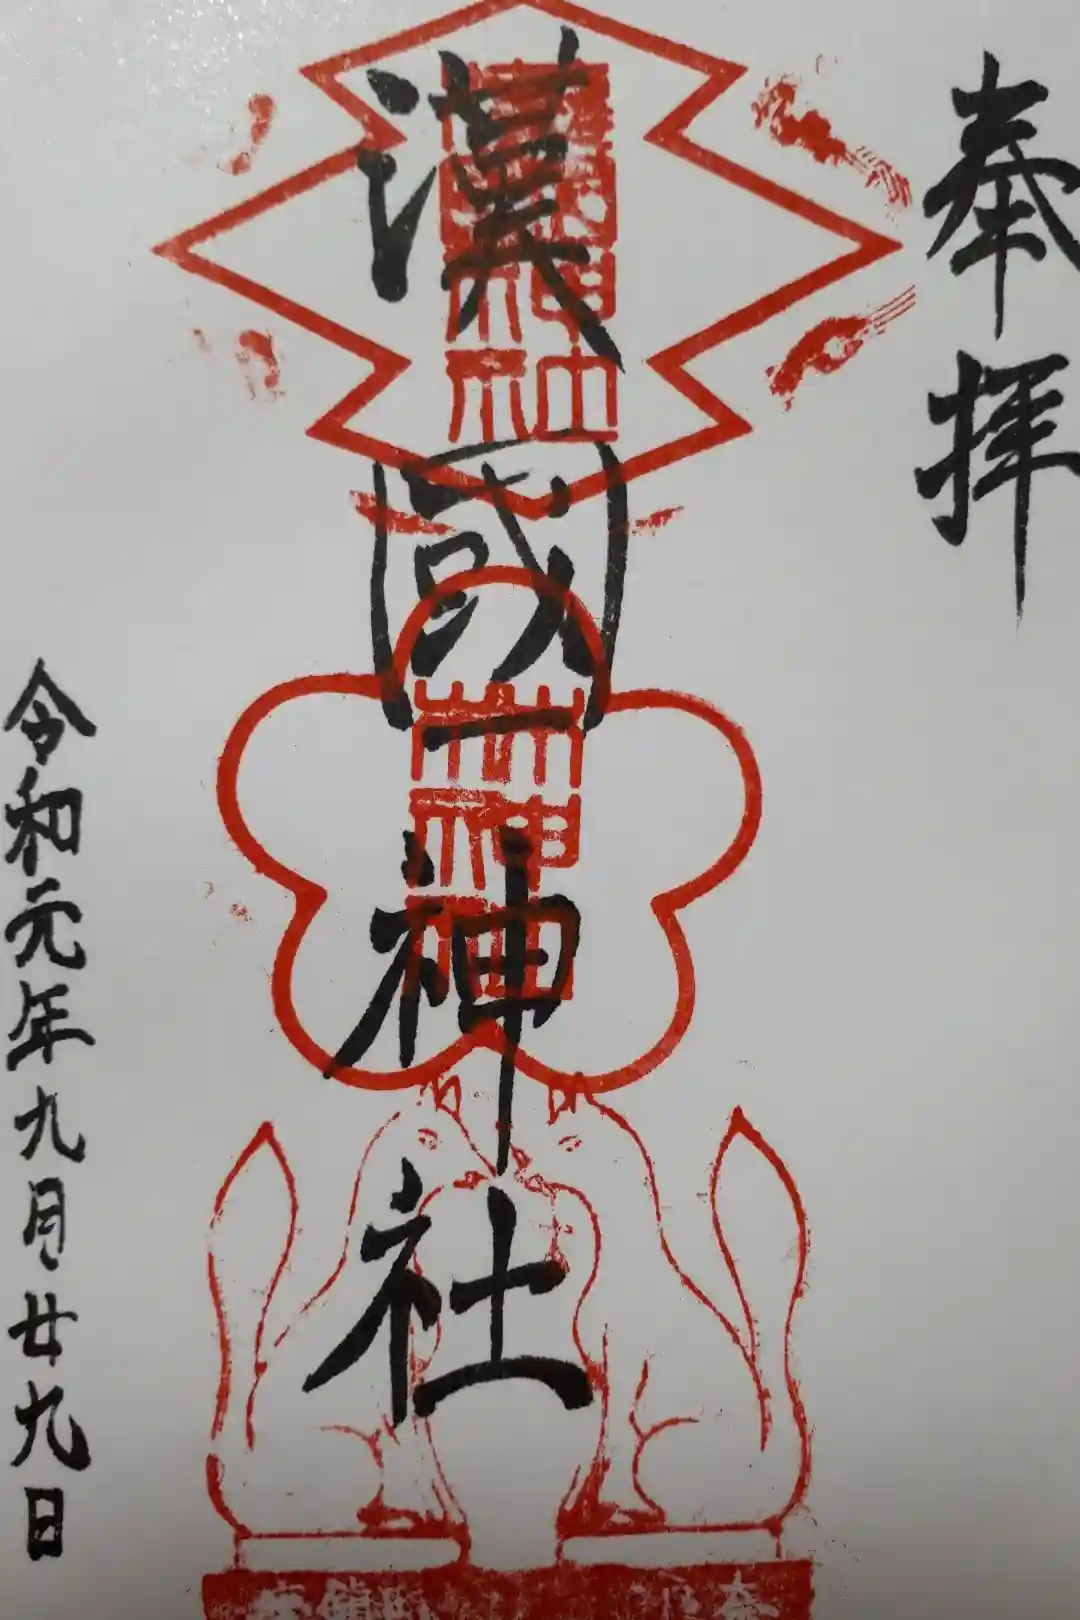 奉拝
漢國神社
令和元年九月廿九日